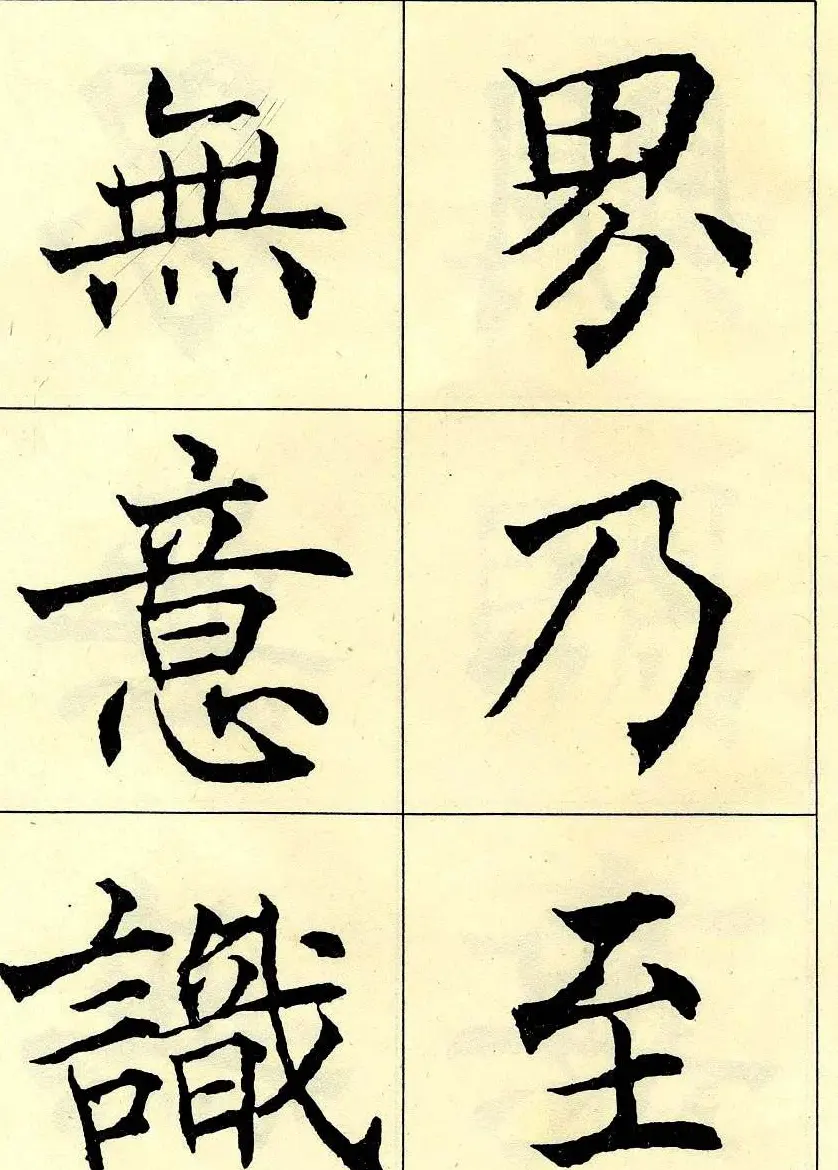 界乃至
無意識